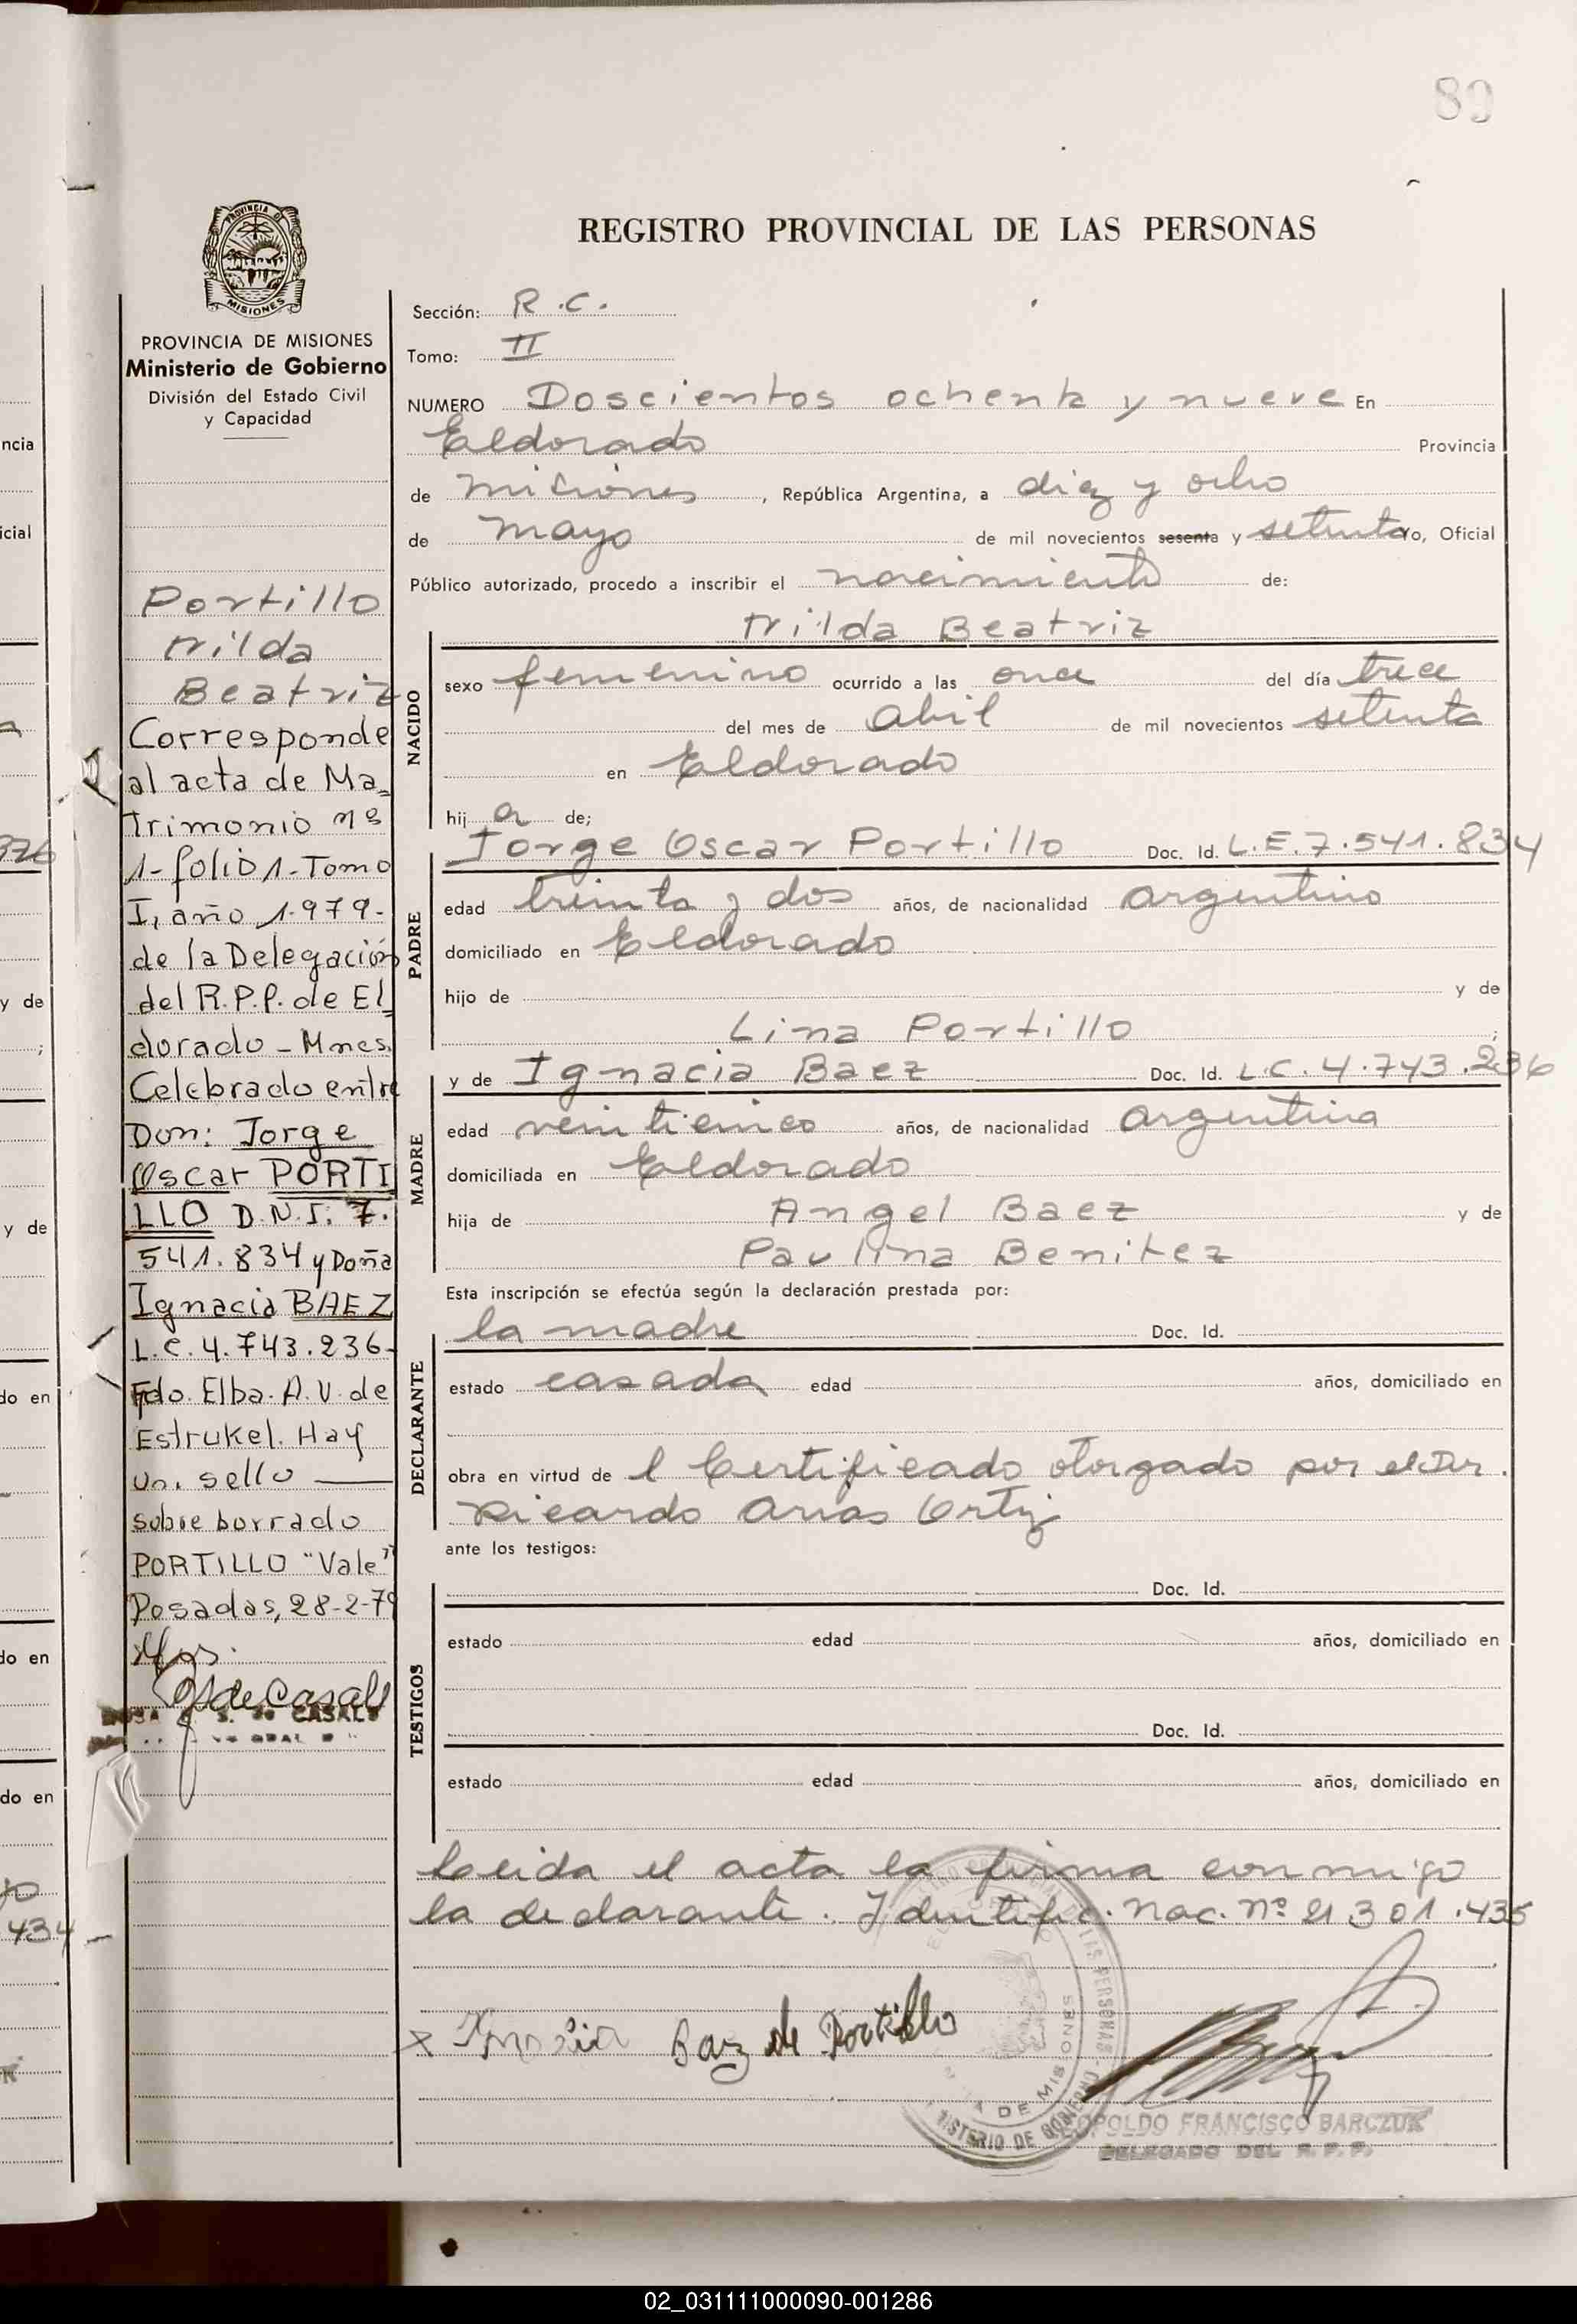 89
REGISTRO PROVINCIAL DE LAS PERSONAS
PROVINCIA DE
MISIONES
PROVINCIA DE MISIONES
Ministerio de Gobierno
División del Estado Civil
y Capacidad
Portillo
Nilda
Beatriz
Corresponde
al acta de Ma_
trimonio nº
1-folio 1-Tomo
I, año 1.979-
de la Delegación
del R.P.P. de El_
dorado - Mnes.
Celebrado entre
Don: Jorge
Oscar PORTI
LLO D.N.I. 7.
541.834 y Doña
Ignacia BAEZ
L.C. 4.743.236-
Fdo. Elba. A. V. de
Estrukel. Hay
un. sello
sobre borrado
PORTILLO "Vale"
Posadas, 28-2-79
de Casals
CASALS
Sección: R.C.
Tomo: II
NUMERO Doscientos ochenta y nueve En
Eldorado Provincia
de misiones, República Argentina, a diez y ocho
de mayo de mil novecientos sesenta y setenta yo, Oficial
Público autorizado, procedo a inscribir el nacimiento de:
Nilda Beatriz
NACIDO
sexo femenino ocurrido a las once del día trece
del mes de abril de mil novecientos setenta
en Eldorado
hij a de;
Jorge Oscar Portillo Doc. Id. L.E. 7.541.834
PADRE
edad treinta y dos años, de nacionalidad argentino
domiciliado en Eldorado
hijo de y de
Lina Portillo ;
y de Ignacia Baez Doc. Id. L.C. 4.743.236
MADRE
edad veinticinco años, de nacionalidad argentina
domiciliada en Eldorado
hija de Angel Baez y de
Paulina Benitez
Esta inscripción se efectúa según la declaración prestada por:
la madre Doc. Id.
DECLARANTE
estado casada edad años, domiciliado en
obra en virtud de l Certificado otorgado por el Dr.
Ricardo Arias Ortiz
ante los testigos:
Doc. Id.
TESTIGOS
estado edad años, domiciliado en
Doc. Id.
estado edad años, domiciliado en
Leida el acta la firma conmigo
la declarante. Identific. Nac. nº 21 301.435
x Ignacia Baez de Portillo
LEOPOLDO FRANCISCO BARCZUK
DELEGADO DEL R. P. P.
ncia
icial
376
y de
;
y de
do en
do en
do en
434
02_031111000090-001286